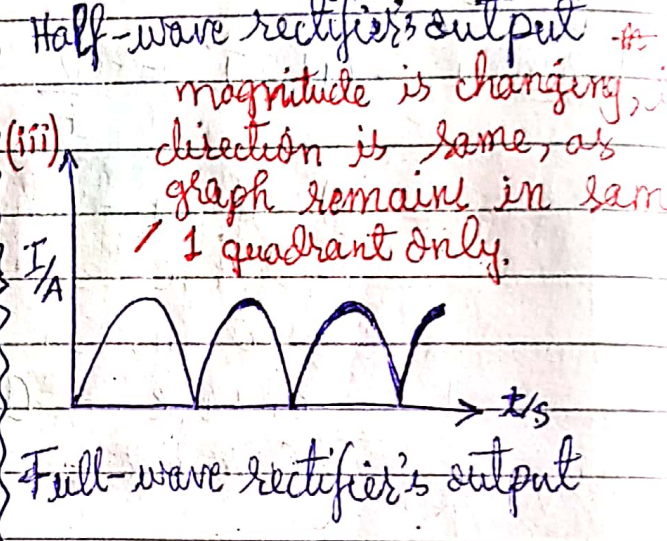 Half-wave rectifier's output
magnitude is changing,
(iii) direction is same, as
graph remains in
/ 1 quadrant only.
I/A
t/s
Full-wave rectifier's output